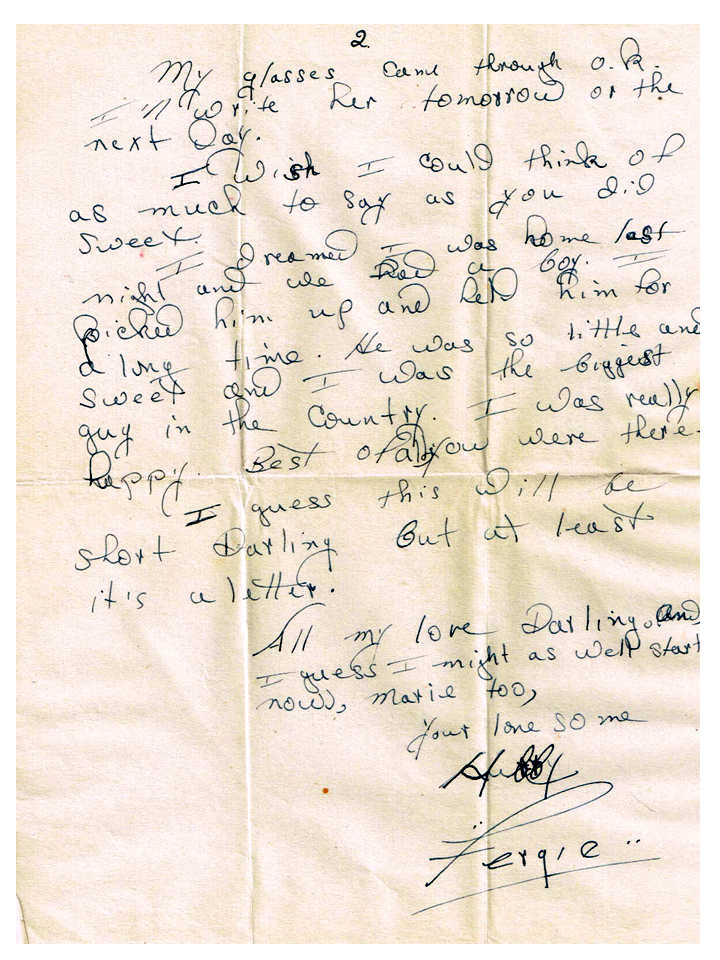 2.
My glasses came through o.k.
I'll write her tomorrow or the
next Day.
I Wish I could think of
as much to say as you did
Sweet.
I dreamed I was home last
night and we had a boy. I
picked him up and held him for
a long time. He was so little and
Sweet and I was the biggest
guy in the Country. I was really
happy. Best of all you were there.
I guess this will be
short Darling But at least
it's a letter.
All my love Darling, and
I guess I might as well start
now, marie too,
your lonesome
Hubby
Fergie